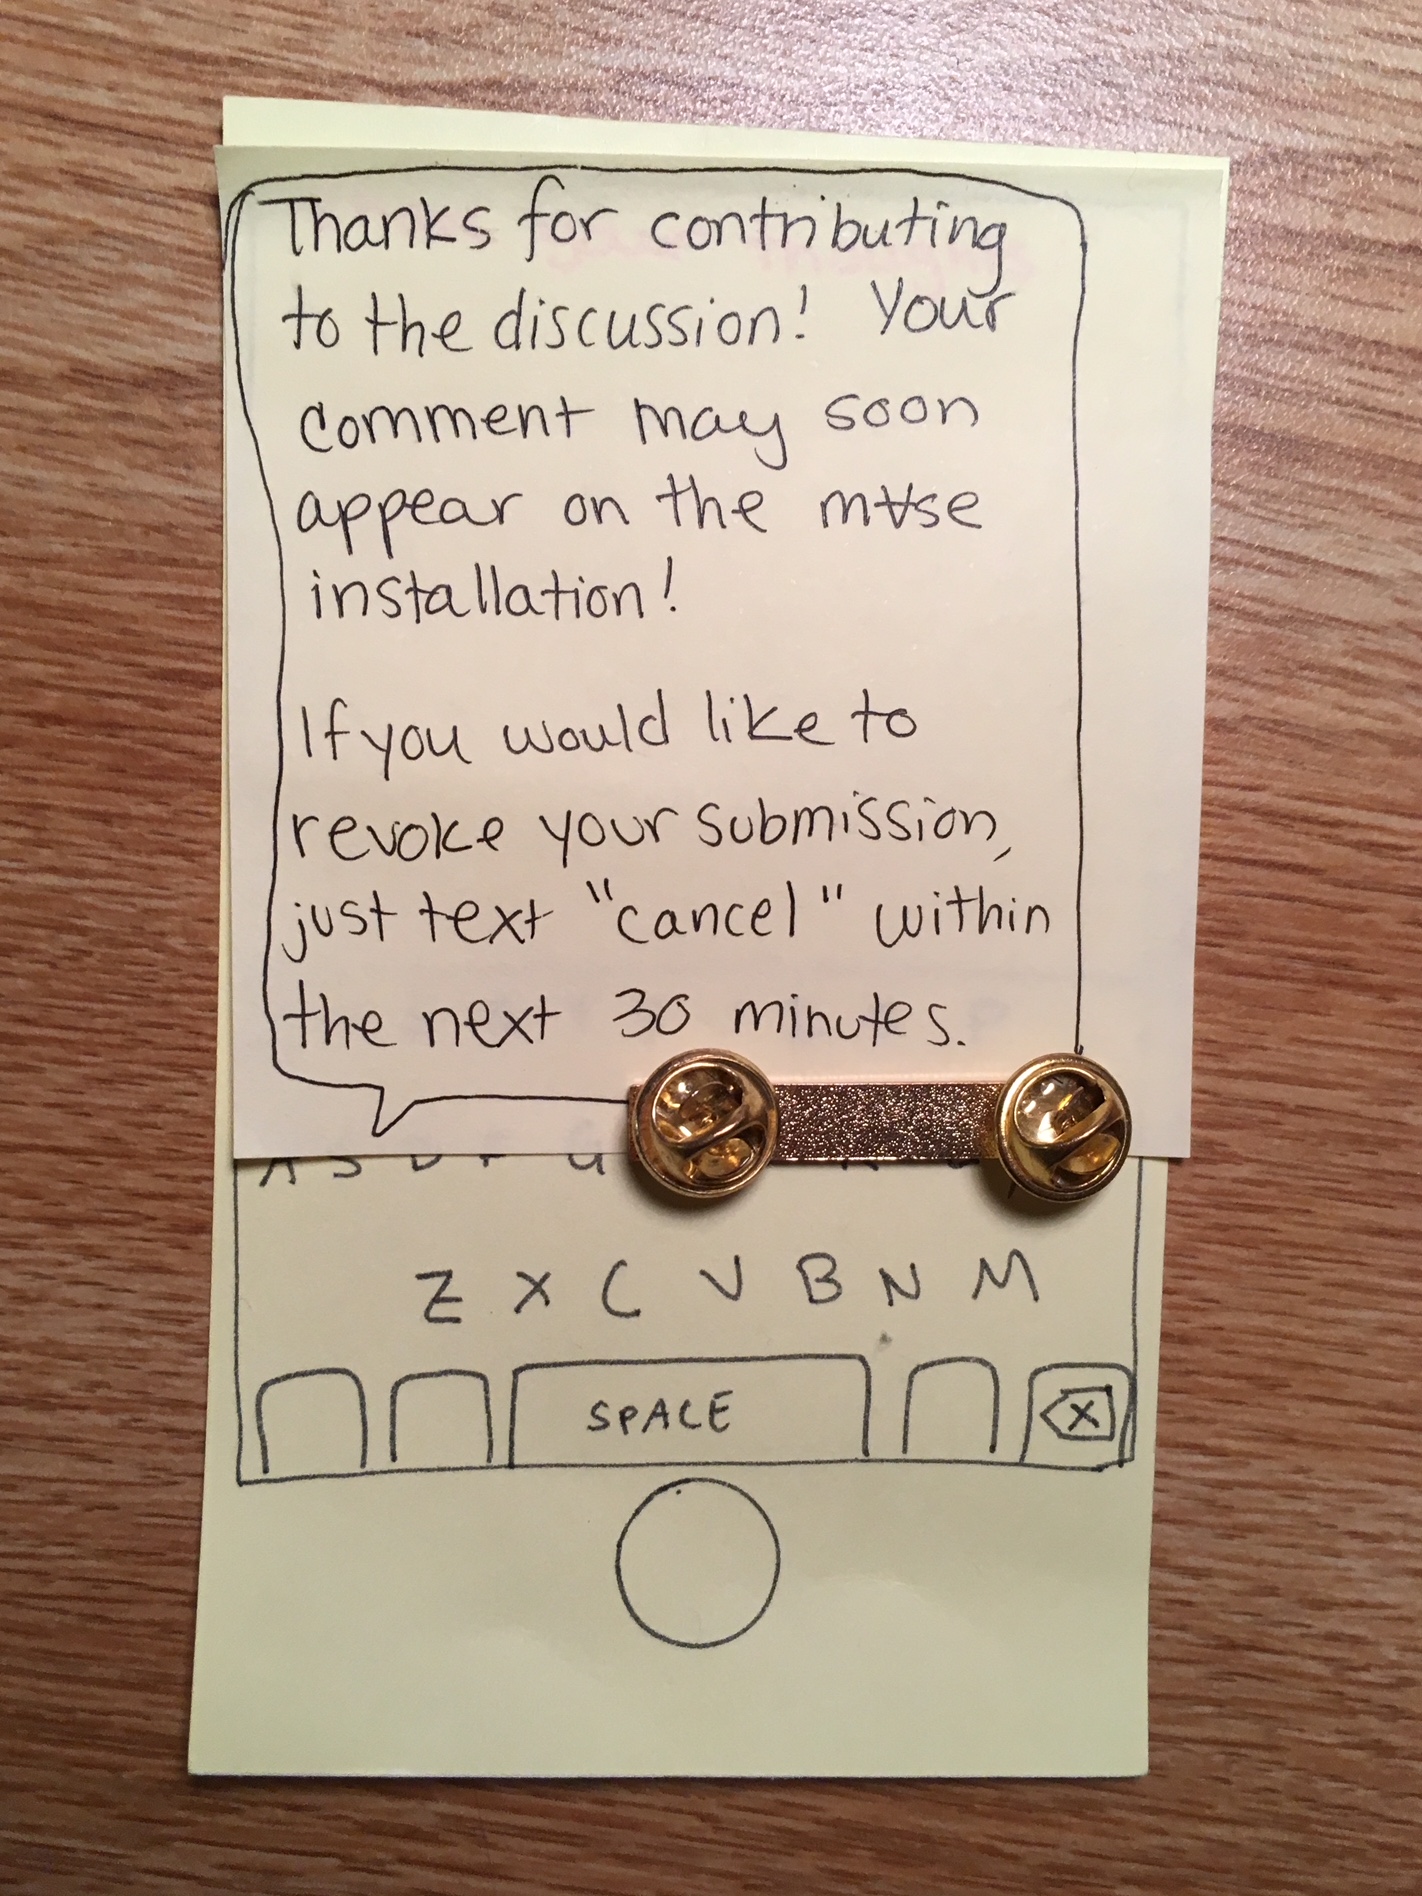 Thanks for contributing
to the discussion! Your
comment may soon
appear on the m∀se
installation!
If you would like to
revoke your submission,
just text "cancel" within
the next 30 minutes.
A S D F G
Z X C V B N M
SPACE
X